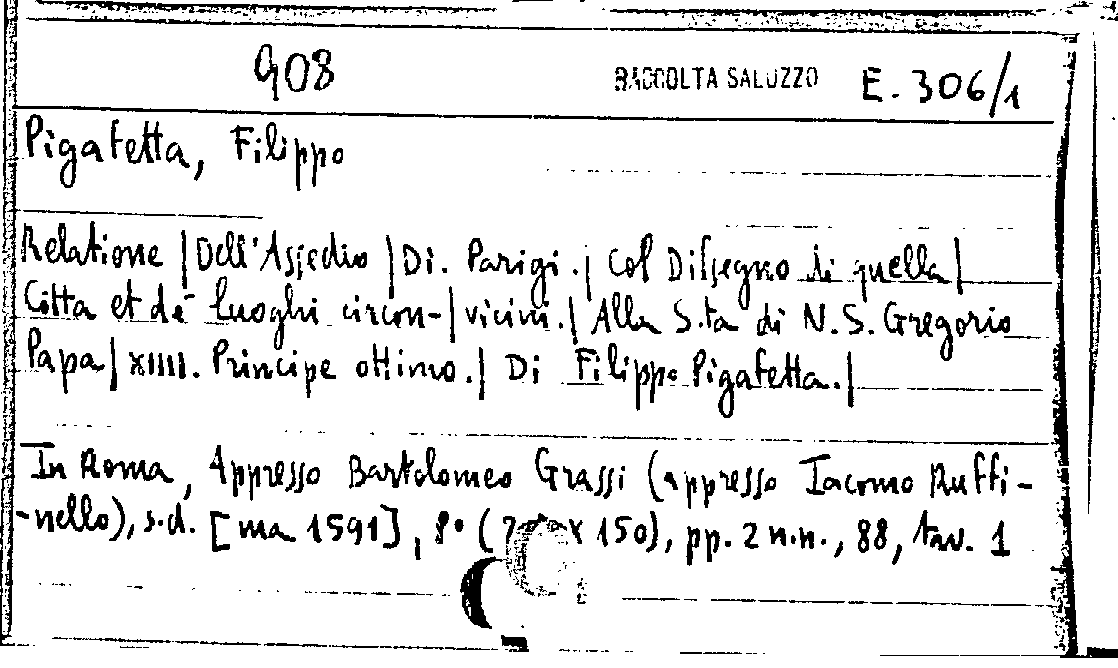 908 RACCOLTA SALUZZO E. 306/1
Pigafetta, Filippo
Relatione | Dell'Assedio | Di. Parigi. | Col Dissegno di quella |
Citta et de' luoghi circon- | vicini. | Alla S.ta di N. S. Gregorio
Papa | XIIII. Principe ottimo. | Di Filippo Pigafetta. |
In Roma, Appresso Bartolomeo Grassi (appresso Iacomo Ruffi-
-nello), s.d. [ma 1591], 8° ( x 150), pp. 2 n.n., 88, tav. 1